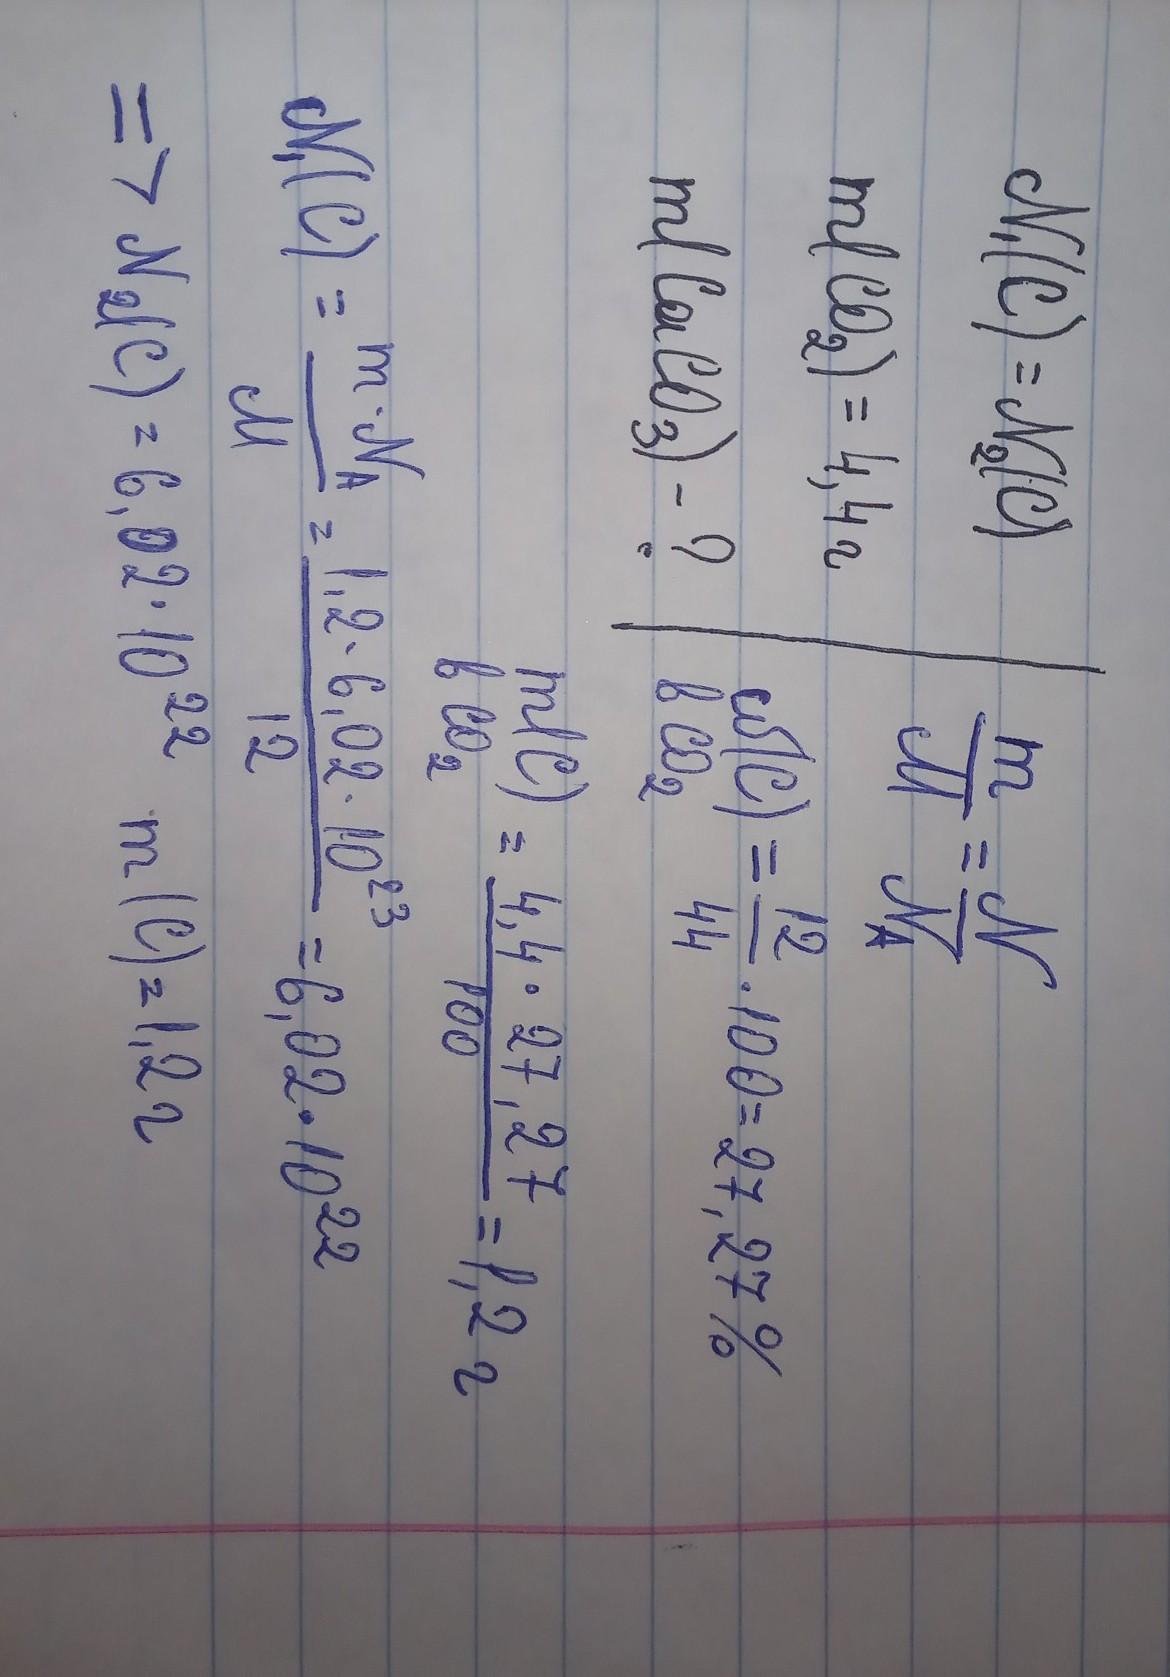 N₁(C) = N₂(C)
m(CO₂) = 4,4г
m(CaCO₃) - ?
m/M = N/Nₐ
ω(C) = 12/44 · 100 = 27,27%
в CO₂
m(C) = 4,4 · 27,27/100 = 1,2 г
в CO₂
N₁(C) = m · Nₐ/M = 1,2 · 6,02 · 10²³/12 = 6,02 · 10²²
=> N₂(C) = 6,02 · 10²² m(C) = 1,2 г